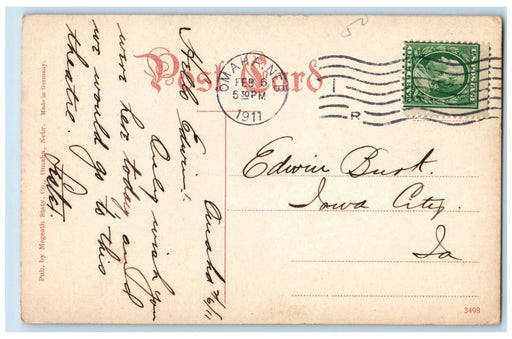 Post Card
OMAHA, NEB
FEB 6
5 30 PM
1911
R
Edwin Burk.
Iowa City.
Ia
Omaha 2/6/11
Hello Edwin!
Only wish you
were here today and
we would go to this
theatre.
Pub. by Megeath Staty. Co., Omaha, Nebr. Made in Germany.
3498